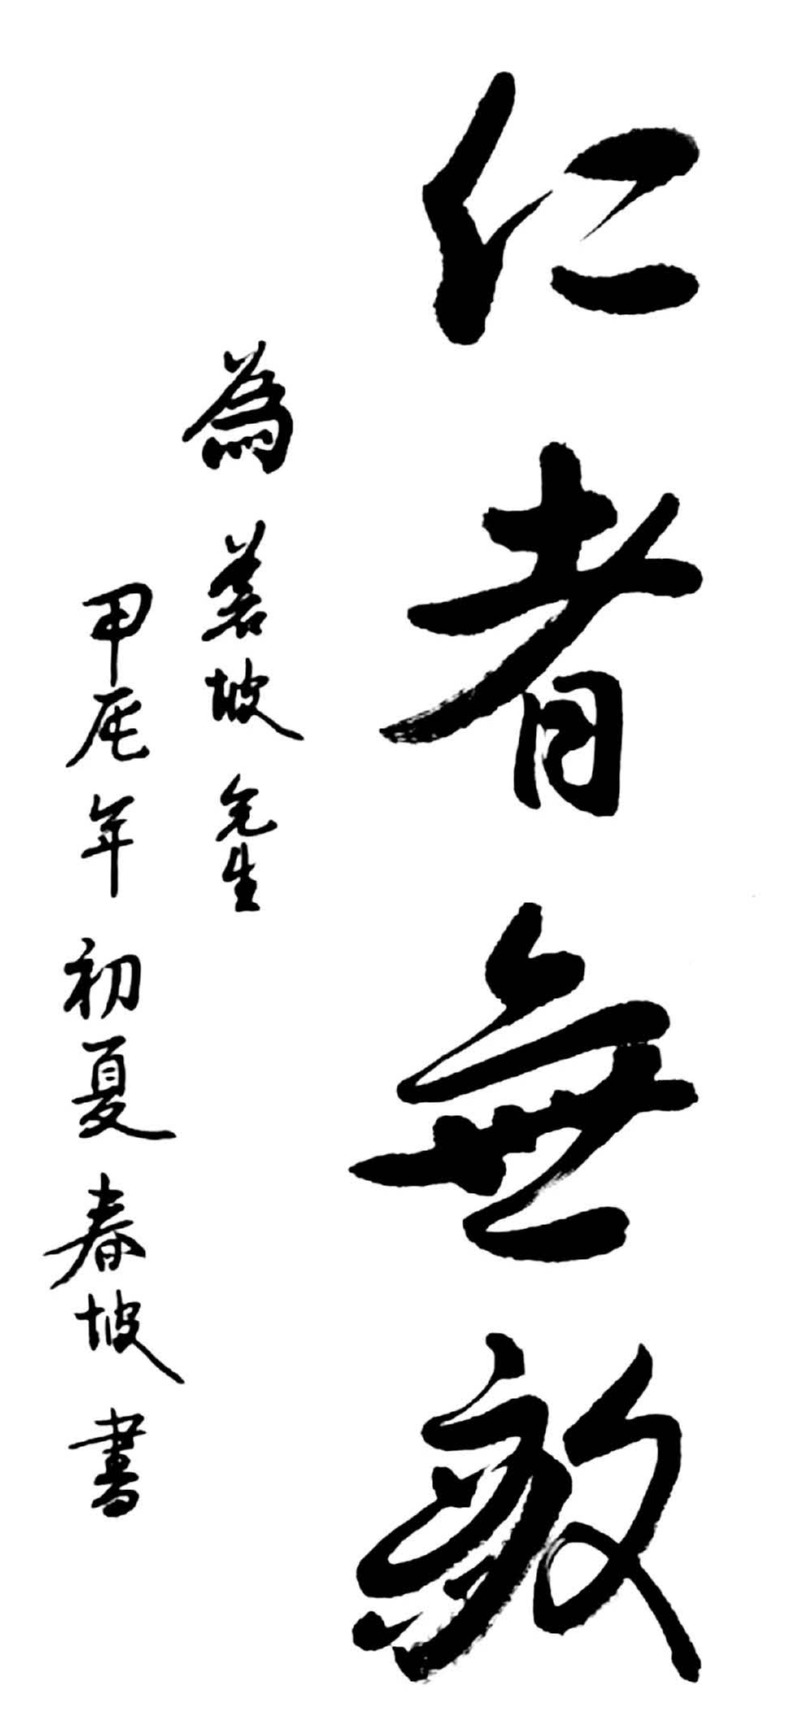 仁者無敵
為蒼坡先生
甲辰年初夏春坡書